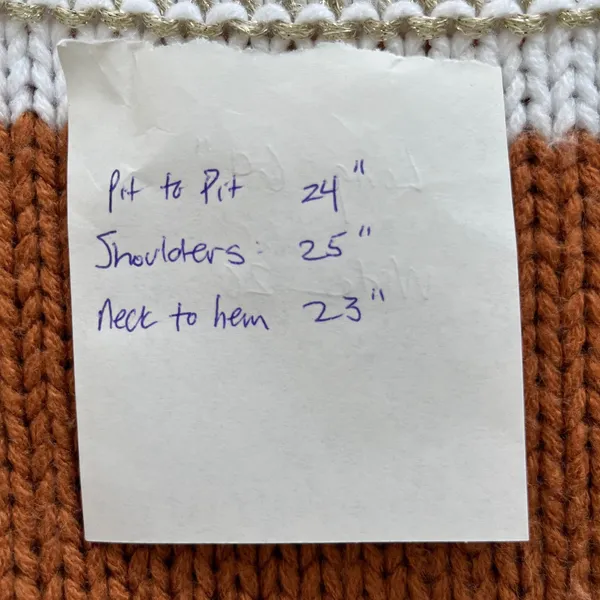 Pit to Pit 24"
Shoulders: 25"
Neck to hem 23"